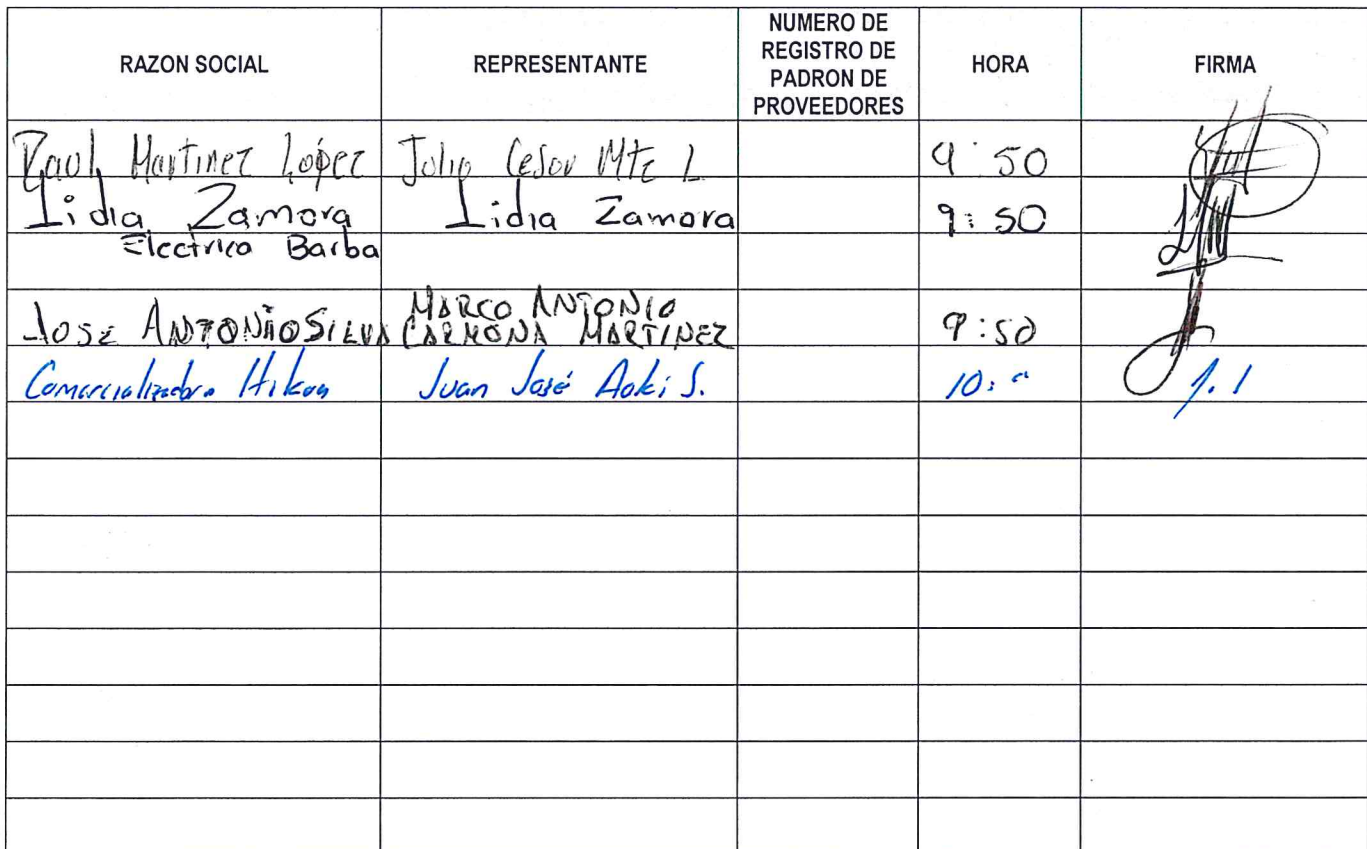 RAZON SOCIAL REPRESENTANTE NUMERO DE REGISTRO DE PADRON DE PROVEEDORES HORA FIRMA
Raul Martinez López Julio Cesar Mtz L 9:50
Lidia Zamora Lidia Zamora 9:50
Electrica Barba
JOSE ANTONIO SILVA MARCO ANTONIO CARMONA MARTINEZ 9:50
Comercializadora Juan José Aoki S. 10: